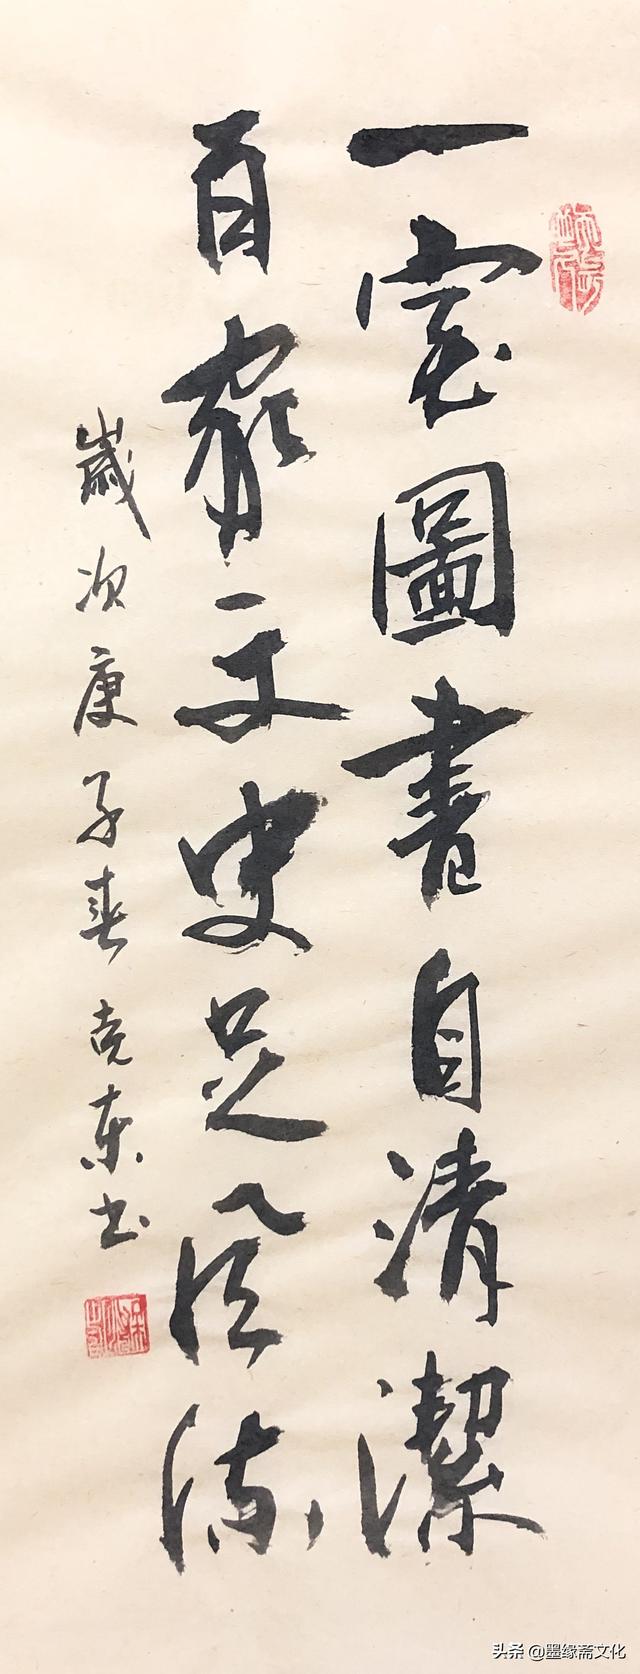 一室圖書自清潔
百家文史足風流
歲次庚子春克東书
头条 @墨缘斋文化